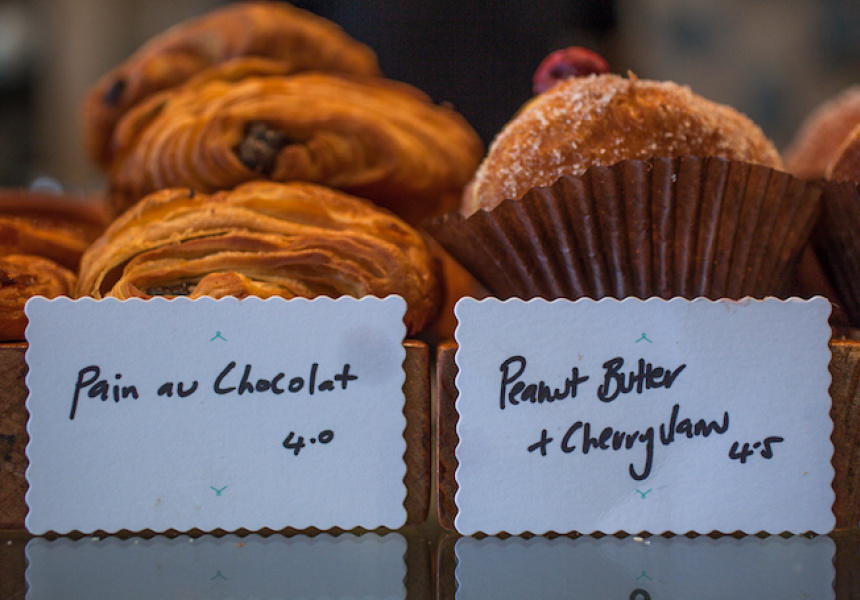 Pain au Chocolat
4.0
Peanut Butter
+ Cherry Jam
4.5